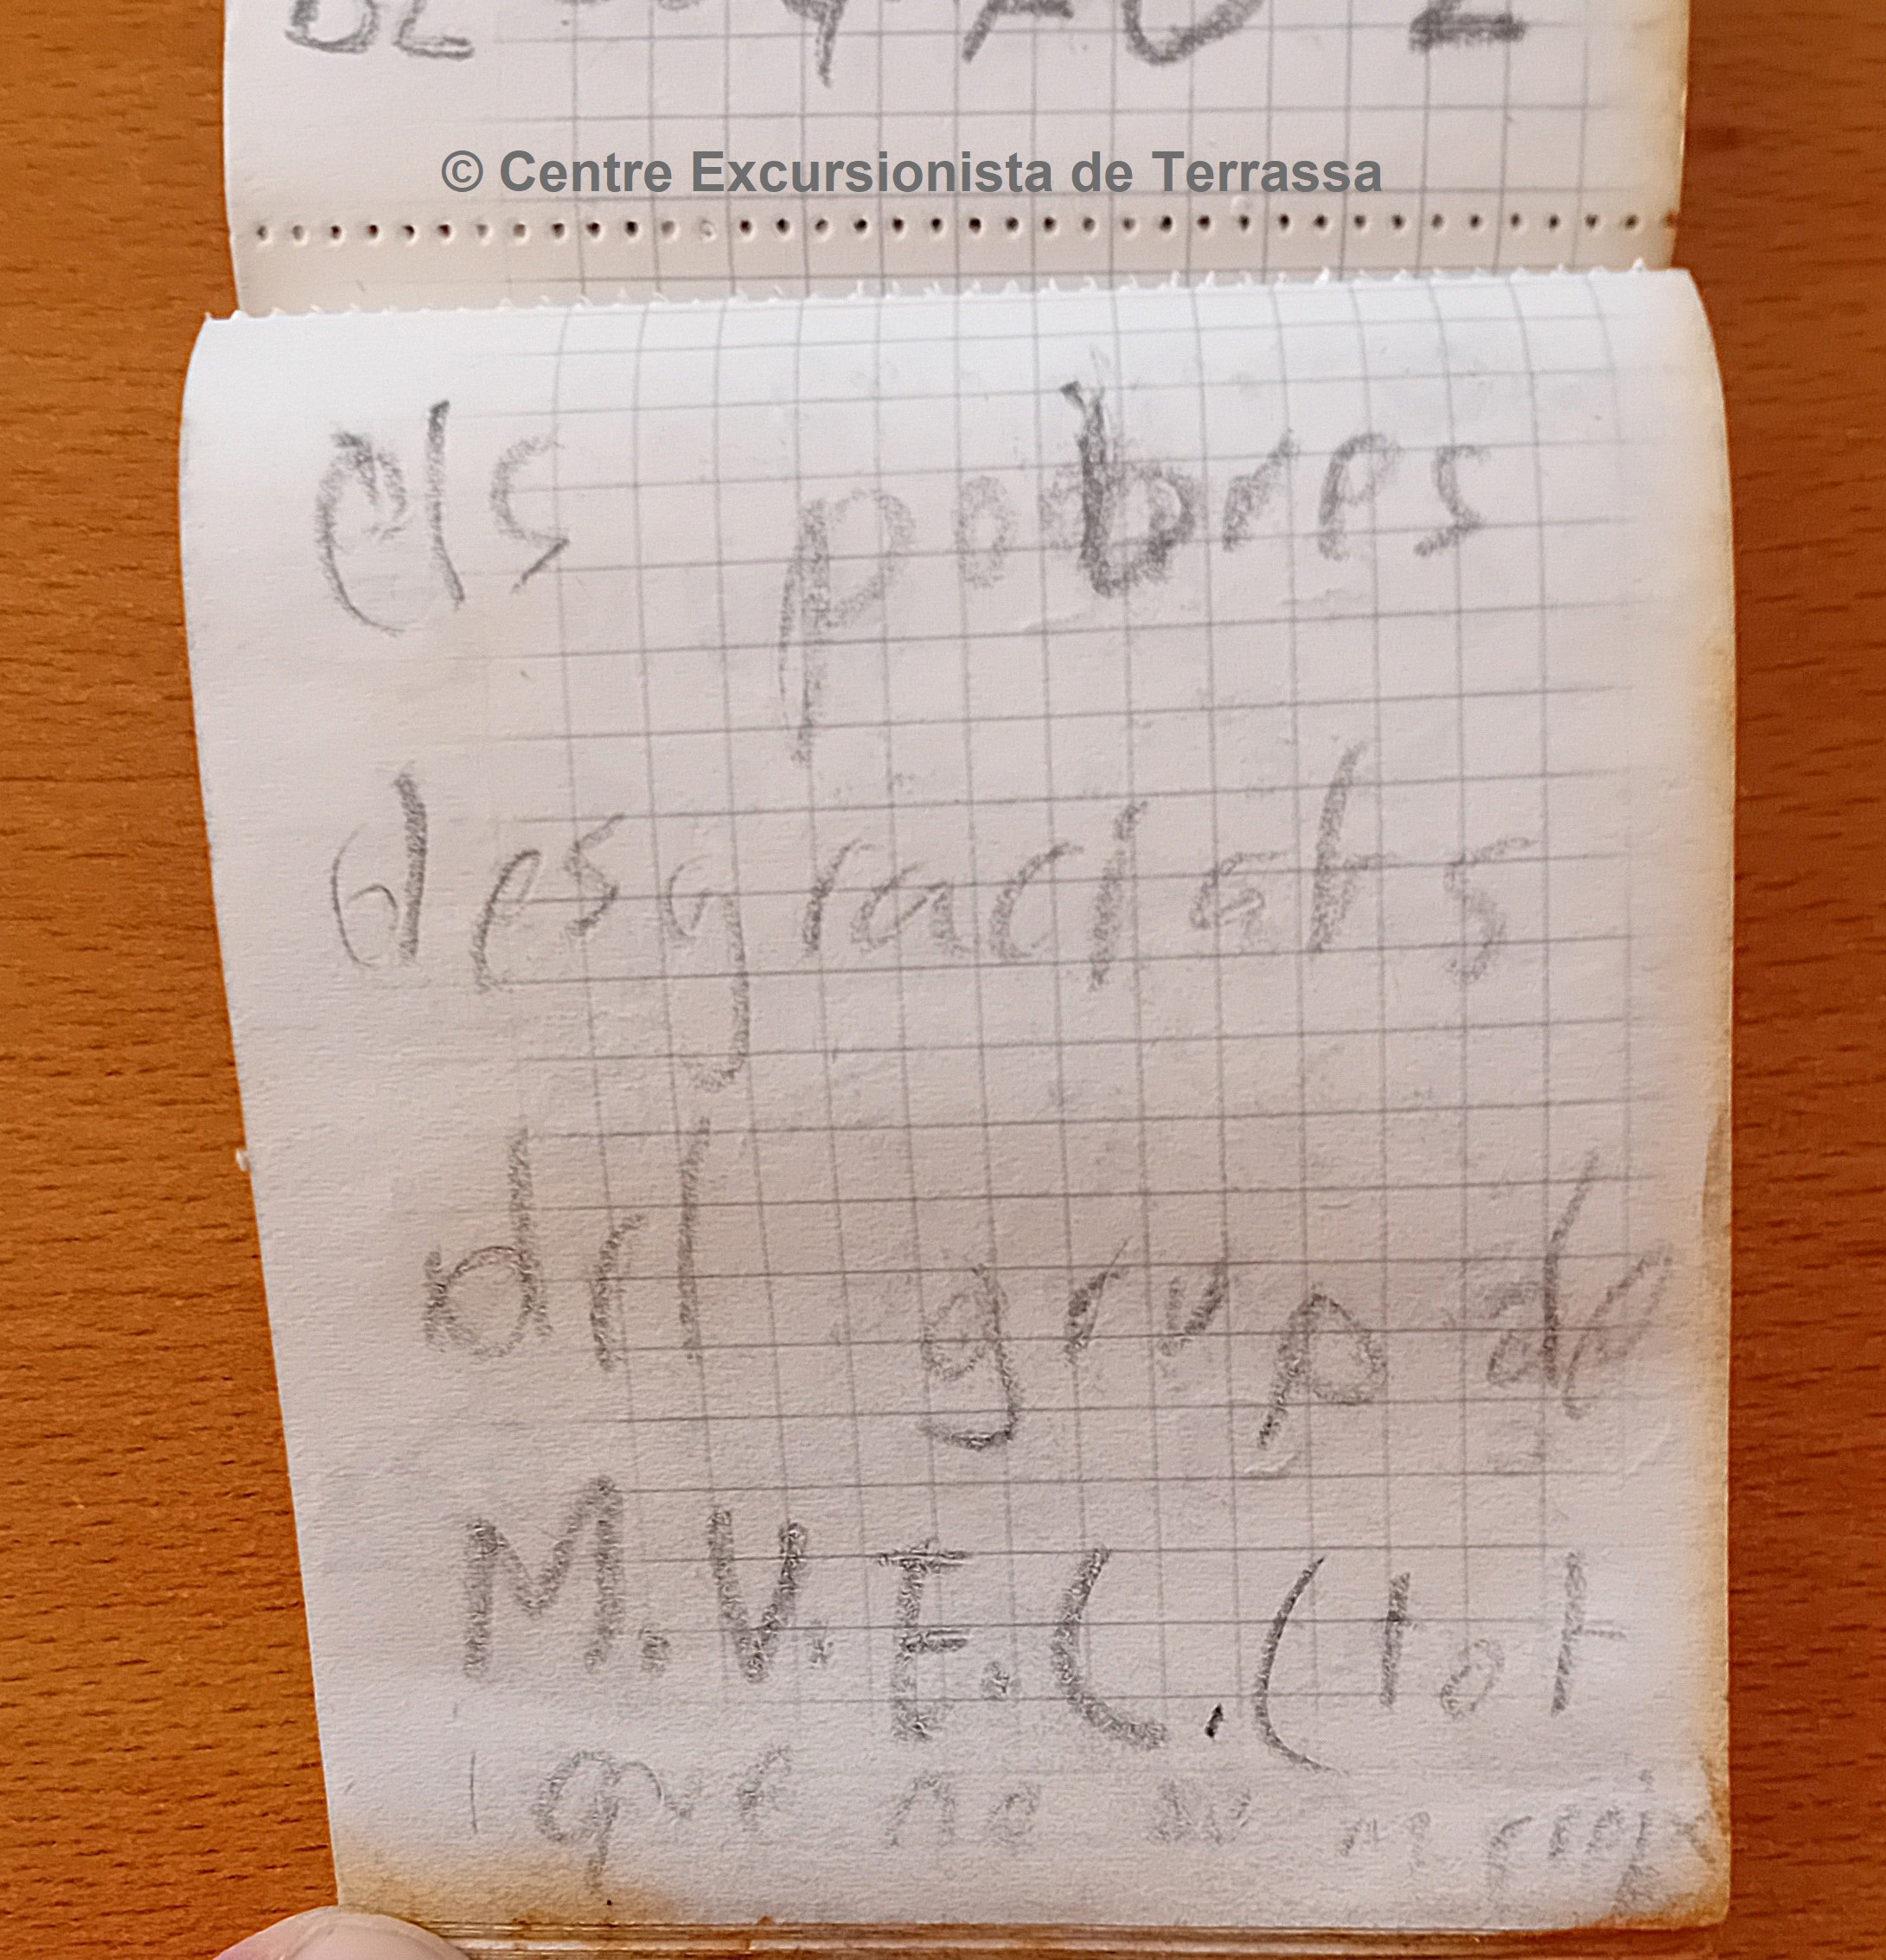 © Centre Excursionista de Terrassa
els pobres
desgraciats
del grup de
M.V.E.C. (tot
i que no